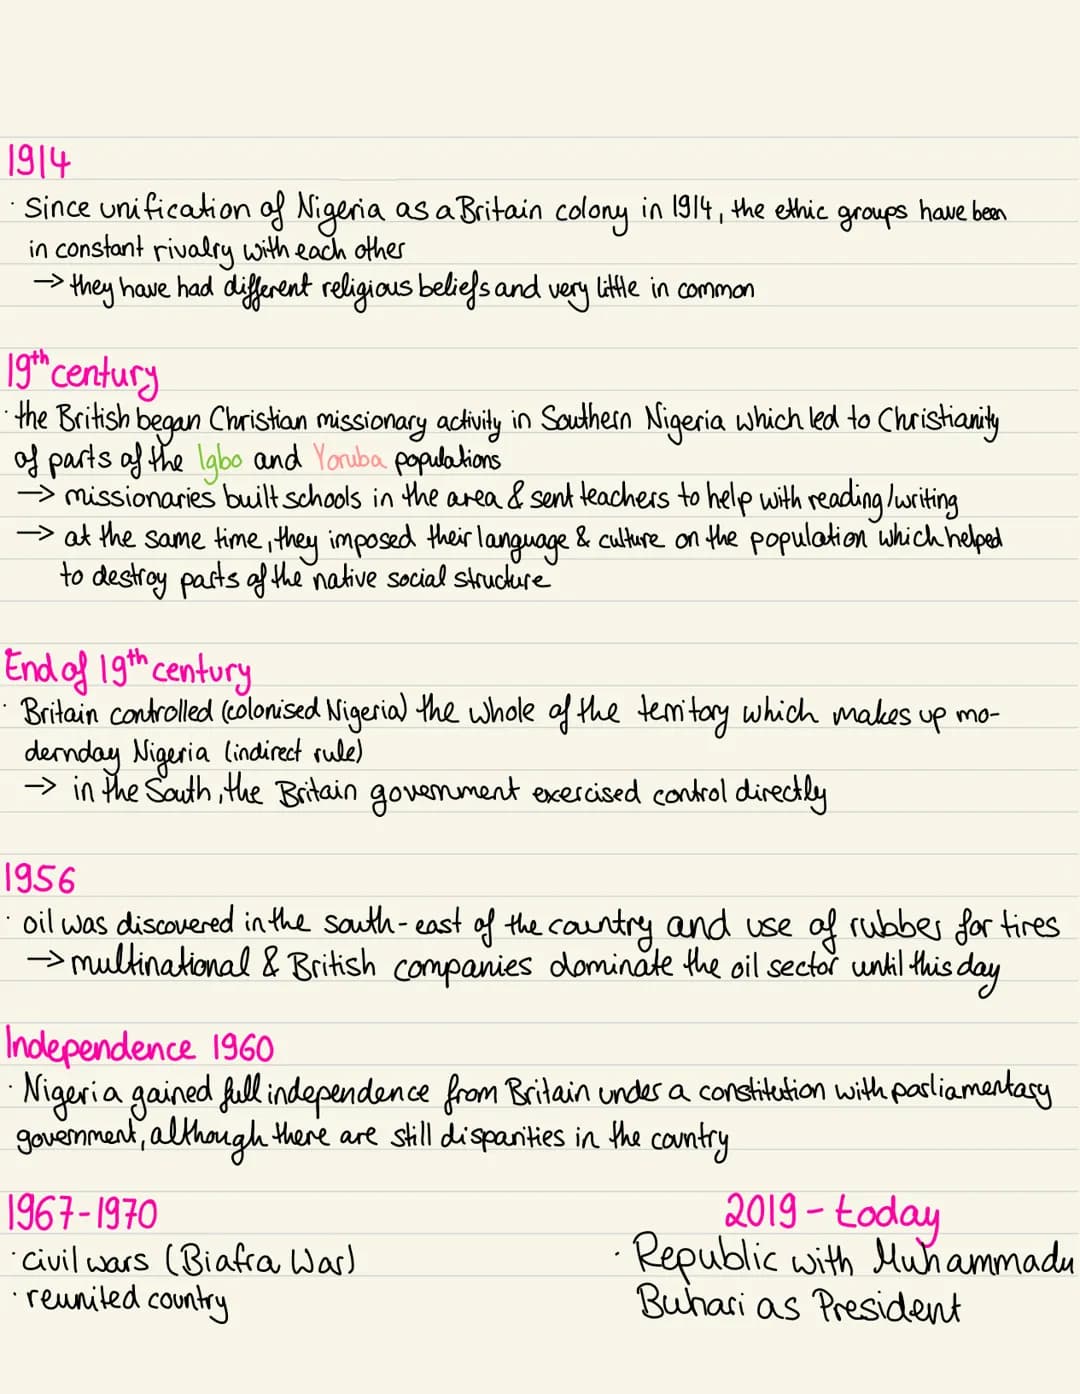 1914
· Since unification of Nigeria as a Britain colony in 1914, the ethic groups have been
in constant rivalry with each other
→ they have had different religious beliefs and very little in common
19th century
· the British began Christian missionary activity in Southern Nigeria which led to Christianity
of parts of the Igbo and Yoruba populations
→ missionaries built schools in the area & sent teachers to help with reading/writing
→ at the same time, they imposed their language & culture on the population which helped
to destroy parts of the native social structure
End of 19th century
· Britain controlled (colonised Nigeria) the whole of the territory which makes up mo-
dernday Nigeria (indirect rule)
→ in the South, the Britain government exercised control directly
1956
· oil was discovered in the south-east of the country and use of rubber for tires
→ multinational & British companies dominate the oil sector until this day
Independence 1960
· Nigeria gained full independence from Britain under a constitution with parliamentary
government, although there are still disparities in the country
1967-1970
· Civil wars (Biafra War)
· reunited country
2019 - today
· Republic with Muhammadu
Buhari as President